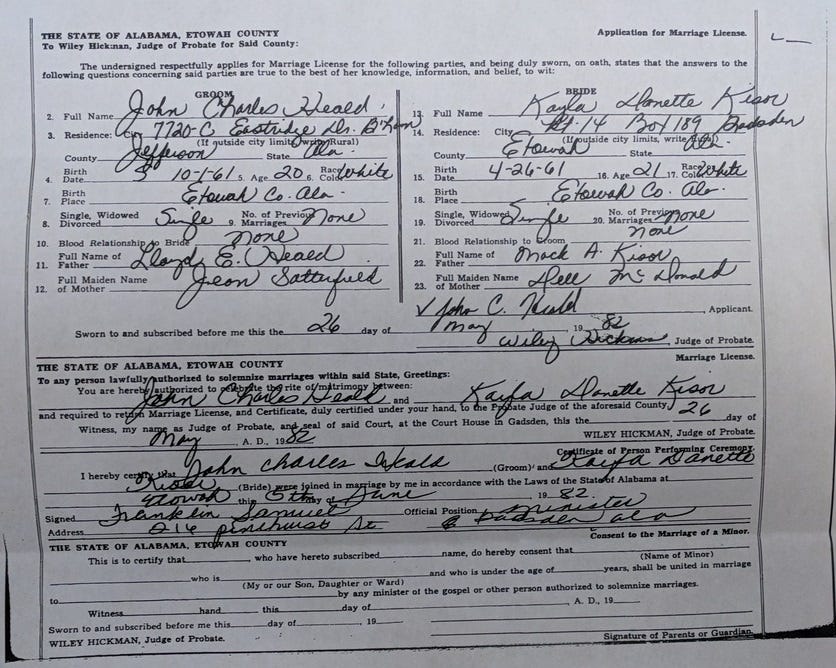 THE STATE OF ALABAMA, ETOWAH COUNTY
Application for Marriage License.
To Wiley Hickman, Judge of Probate for Said County:
The undersigned respectfully applies for Marriage License for the following parties, and being duly sworn, on oath, states that the answers to the
following questions concerning said parties are true to the best of her knowledge, information, and belief, to wit:
GROOM
2. Full Name John Charles Heald
3. Residence: City 7720-C Eastridge Dr. B'ham
(If outside city limits, write Rural)
County Jefferson State Ala.
4. Birth Date 10-1-61 5. Age 20 6. Race Color White
7. Birth Place Etowah Co. Ala.
8. Single, Widowed Divorced Single 9. No. of Previous Marriages None
10. Blood Relationship to Bride None
11. Full Name of Father Lloyd E. Heald
12. Full Maiden Name of Mother Jean Satterfield
BRIDE
13. Full Name Kayla Danette Kisor
14. Residence: City Rt. 14 Box 189 Gadsden
(If outside city limits, write Rural)
County Etowah State Ala.
15. Birth Date 4-26-61 16. Age 21 17. Race Color White
18. Birth Place Etowah Co. Ala.
19. Single, Widowed Divorced Single 20. No. of Previous Marriages None
21. Blood Relationship to Groom None
22. Full Name of Father Mack A. Kisor
23. Full Maiden Name of Mother Dell McDonald
✓ John C. Heald, Applicant.
Sworn to and subscribed before me this the 26 day of May, 1982
Wiley Hickman, Judge of Probate.
THE STATE OF ALABAMA, ETOWAH COUNTY
Marriage License.
To any person lawfully authorized to solemnize marriages within said State, Greetings:
You are hereby authorized to celebrate the rite of matrimony between:
John Charles Heald and Kayla Danette Kisor
and required to return Marriage License, and Certificate, duly certified under your hand, to the Probate Judge of the aforesaid County.
Witness, my name as Judge of Probate, and seal of said Court, at the Court House in Gadsden, this the 26 day of
May, A. D., 1982
WILEY HICKMAN, Judge of Probate.
Certificate of Person Performing Ceremony.
I hereby certify that John Charles Heald (Groom) and Kayla Danette
(Bride) were joined in marriage by me in accordance with the Laws of the State of Alabama at
Etowah this 5th day of June 1982.
Signed Franklin Samuel Official Position Minister
Address 216 Pinehurst St Gadsden Ala
THE STATE OF ALABAMA, ETOWAH COUNTY
Consent to the Marriage of a Minor.
This is to certify that, who have hereto subscribed name, do hereby consent that
(Name of Minor)
who is and who is under the age of years, shall be united in marriage
(My or our Son, Daughter or Ward)
to by any minister of the gospel or other person authorized to solemnize marriages.
Witness hand this day of, A. D., 19
Sworn to and subscribed before me this day of, 19
WILEY HICKMAN, Judge of Probate.
Signature of Parents or Guardian.